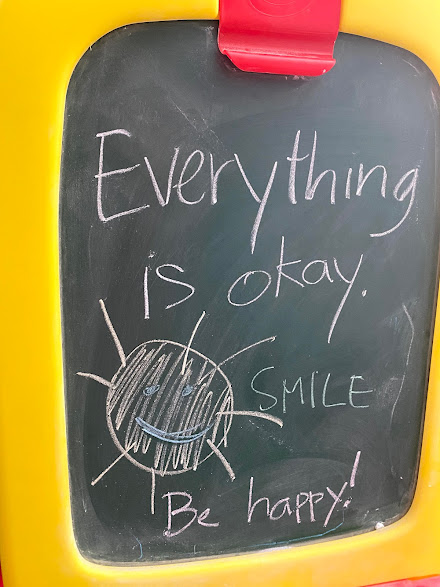 Everything
is okay.
SMILE
Be happy!